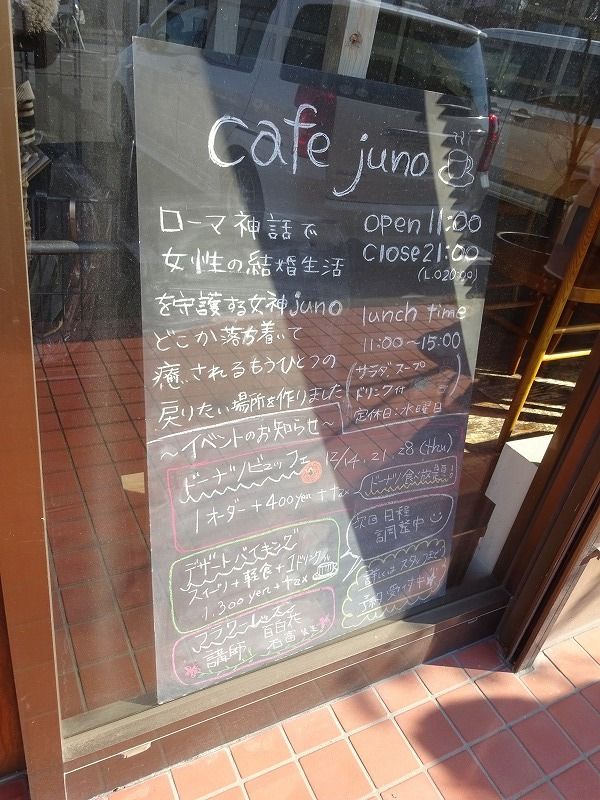 cafe juno
ローマ神話で
女性の結婚生活
を守護する女神juno
どこか落ち着いて
癒されるもうひとつの
戻りたい場所を作りました
open 11:00
close 21:00
(L.O 20:00)
lunch time
11:00〜15:00
サラダ、スープ
ドリンク付
定休日:水曜日
〜イベントのお知らせ〜
ドーナツビュッフェ
12/14, 21, 28 (thu)
1オーダー+400yen+tax
ドーナツ食べ放題!
デザートバイキング
スイーツ+軽食+1ドリンク
1,300yen+tax
次回日程
調整中
フラワーレッスン
講師
詳しくはスタッフまで
予約受付中